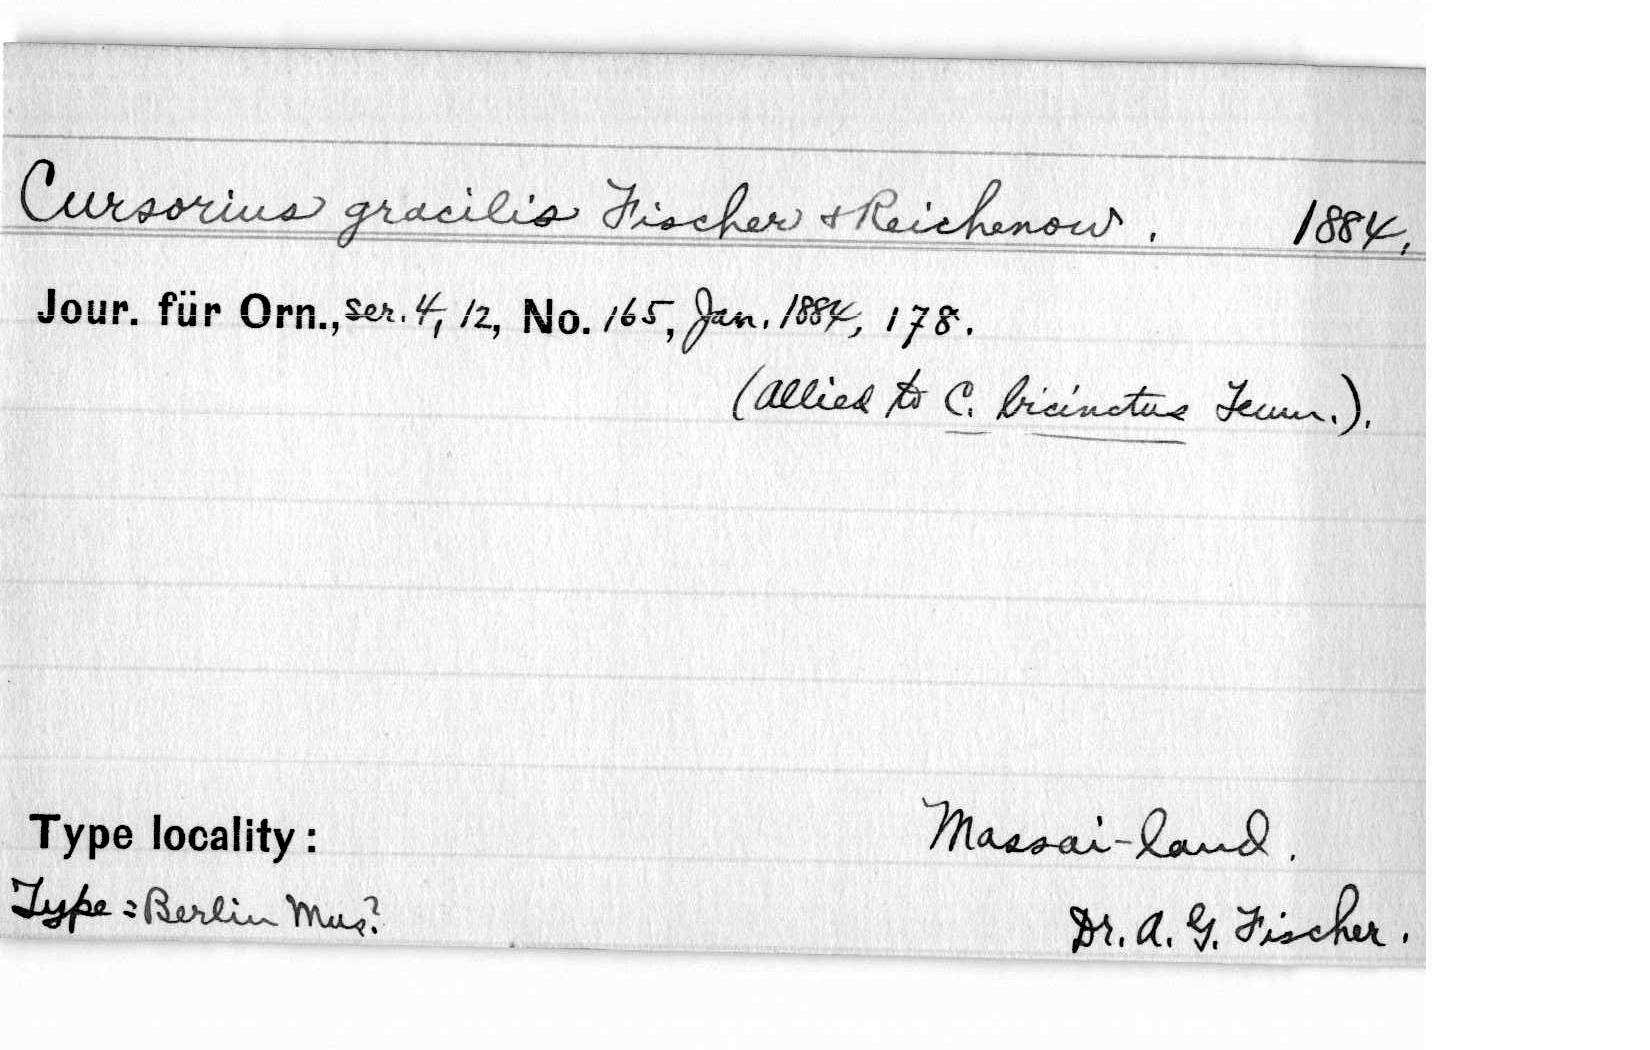 Cursorius gracilis Fischer & Reichenow. 1884.
Jour. für Orn., ser. 4, 12, No. 165, Jan. 1884, 178.
(Allied to C. bicinctus Temm.).
Type locality: Massai-land.
Type = Berlin Mus? Dr. A. G. Fischer.